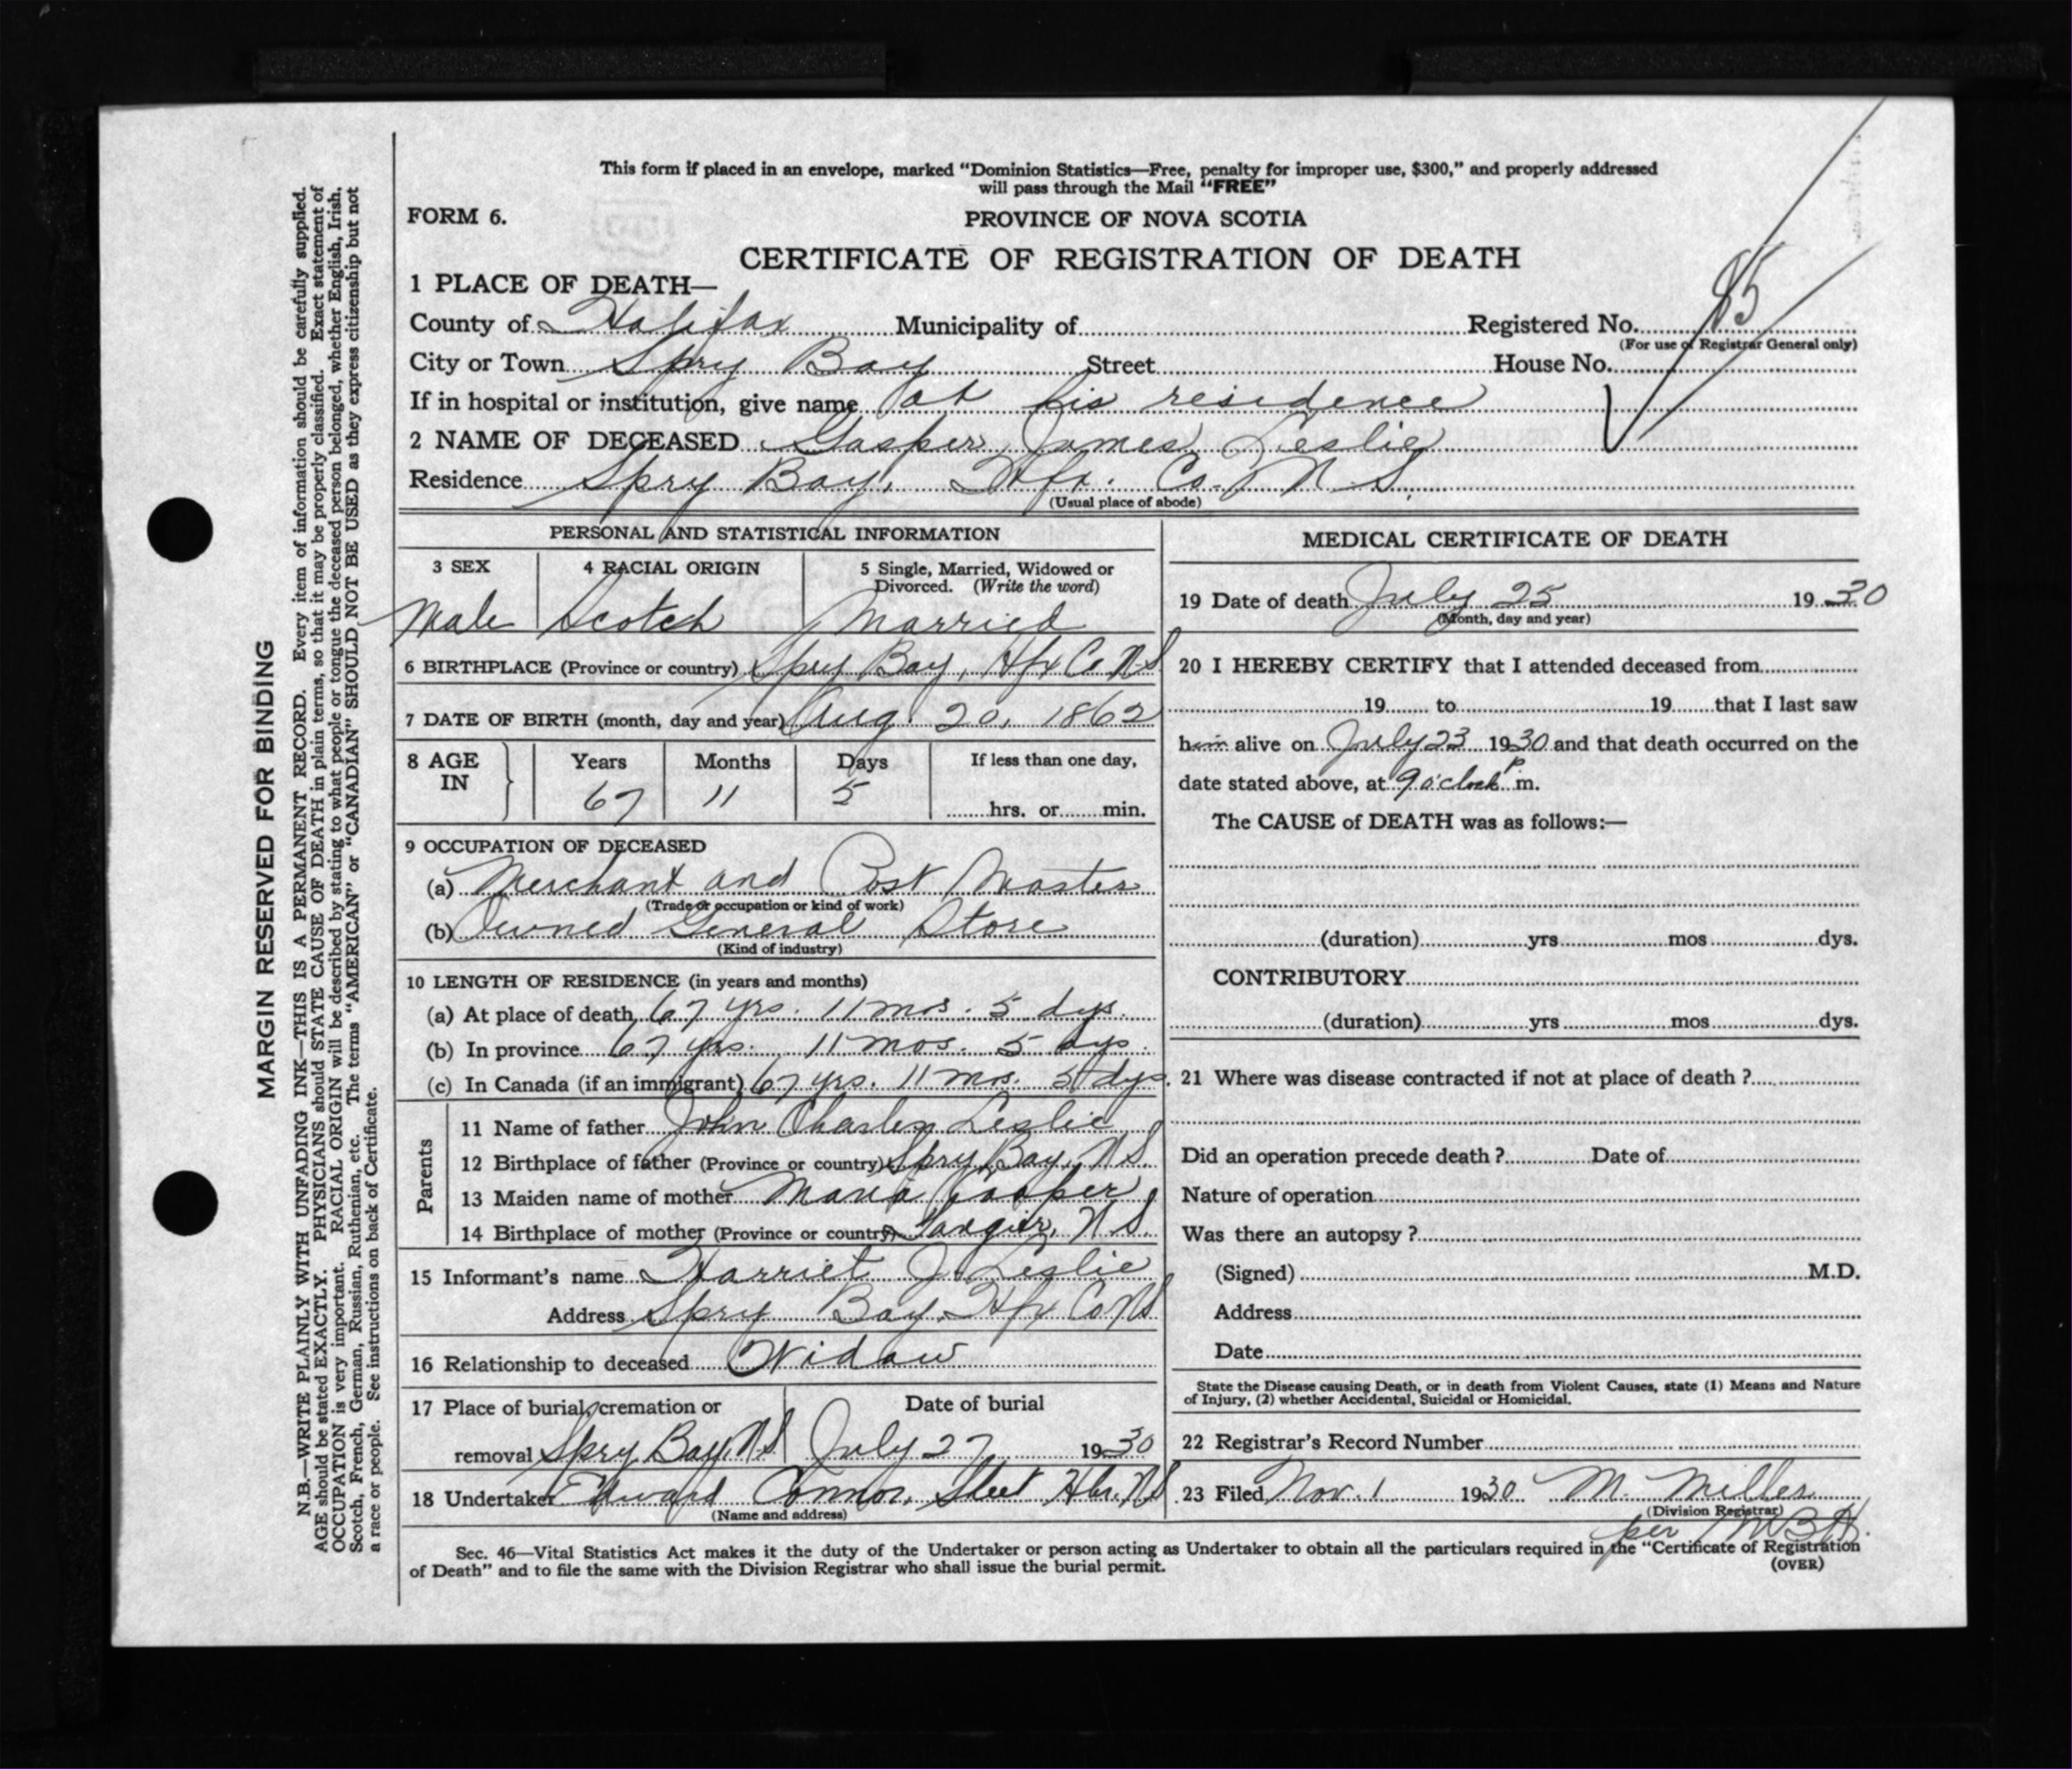 This form if placed in an envelope, marked “Dominion Statistics—Free, penalty for improper use, $300,” and properly addressed
will pass through the Mail “FREE”
FORM 6.
PROVINCE OF NOVA SCOTIA
CERTIFICATE OF REGISTRATION OF DEATH
1 PLACE OF DEATH—
County of Halifax Municipality of Registered No. 85
(For use of Registrar General only)
City or Town Spry Bay Street House No.
If in hospital or institution, give name at his residence
2 NAME OF DECEASED Gasper James Leslie
Residence Spry Bay, Hfx. Co. N. S.
(Usual place of abode)
PERSONAL AND STATISTICAL INFORMATION
3 SEX
Male
4 RACIAL ORIGIN
Scotch
5 Single, Married, Widowed or
Divorced. (Write the word)
Married
6 BIRTHPLACE (Province or country) Spry Bay, Hfx Co. N S
7 DATE OF BIRTH (month, day and year) Aug. 20, 1862
8 AGE
IN
Years Months Days If less than one day,
67 11 5 hrs. or min.
9 OCCUPATION OF DECEASED
(a) Merchant and Post Master
(Trade or occupation or kind of work)
(b) Owned General Store
(Kind of industry)
10 LENGTH OF RESIDENCE (in years and months)
(a) At place of death 67 yrs. 11 mos. 5 dys.
(b) In province 67 yrs. 11 mos. 5 dys.
(c) In Canada (if an immigrant) 67 yrs. 11 mos. 5 dys.
Parents
11 Name of father John Charles Leslie
12 Birthplace of father (Province or country) Spry Bay, N S.
13 Maiden name of mother Maria
14 Birthplace of mother (Province or country) Tangier, N S.
15 Informant's name Harriet J. Leslie
Address Spry Bay, Hfx Co N S
16 Relationship to deceased Widow
17 Place of burial, cremation or Date of burial
removal Spry Bay, N.S. July 27 1930
18 Undertaker Howard Connor, Sheet Hbr. N S
(Name and address)
MEDICAL CERTIFICATE OF DEATH
19 Date of death July 25 1930
(Month, day and year)
20 I HEREBY CERTIFY that I attended deceased from
19 to 19 that I last saw
him alive on July 23 1930 and that death occurred on the
date stated above, at 9 o'clock p m.
The CAUSE of DEATH was as follows:—
(duration) yrs mos dys.
CONTRIBUTORY
(duration) yrs mos dys.
21 Where was disease contracted if not at place of death ?
Did an operation precede death ? Date of
Nature of operation
Was there an autopsy ?
(Signed) M.D.
Address
Date
State the Disease causing Death, or in death from Violent Causes, state (1) Means and Nature
of Injury, (2) whether Accidental, Suicidal or Homicidal.
22 Registrar's Record Number
23 Filed Nov. 1 1930 M. Miller
(Division Registrar)
per
Sec. 46—Vital Statistics Act makes it the duty of the Undertaker or person acting as Undertaker to obtain all the particulars required in the “Certificate of Registration
of Death” and to file the same with the Division Registrar who shall issue the burial permit.
(OVER)
MARGIN RESERVED FOR BINDING
N.B.—WRITE PLAINLY WITH UNFADING INK—THIS IS A PERMANENT RECORD. Every item of information should be carefully supplied.
AGE should be stated EXACTLY. PHYSICIANS should STATE CAUSE OF DEATH in plain terms, so that it may be properly classified. Exact statement of
OCCUPATION is very important. RACIAL ORIGIN will be described by stating to what people or tongue the deceased person belonged, whether English, Irish,
Scotch, French, German, Russian, Ruthenian, etc. The terms “AMERICAN” or “CANADIAN” SHOULD NOT BE USED as they express citizenship but not
a race or people. See instructions on back of Certificate.